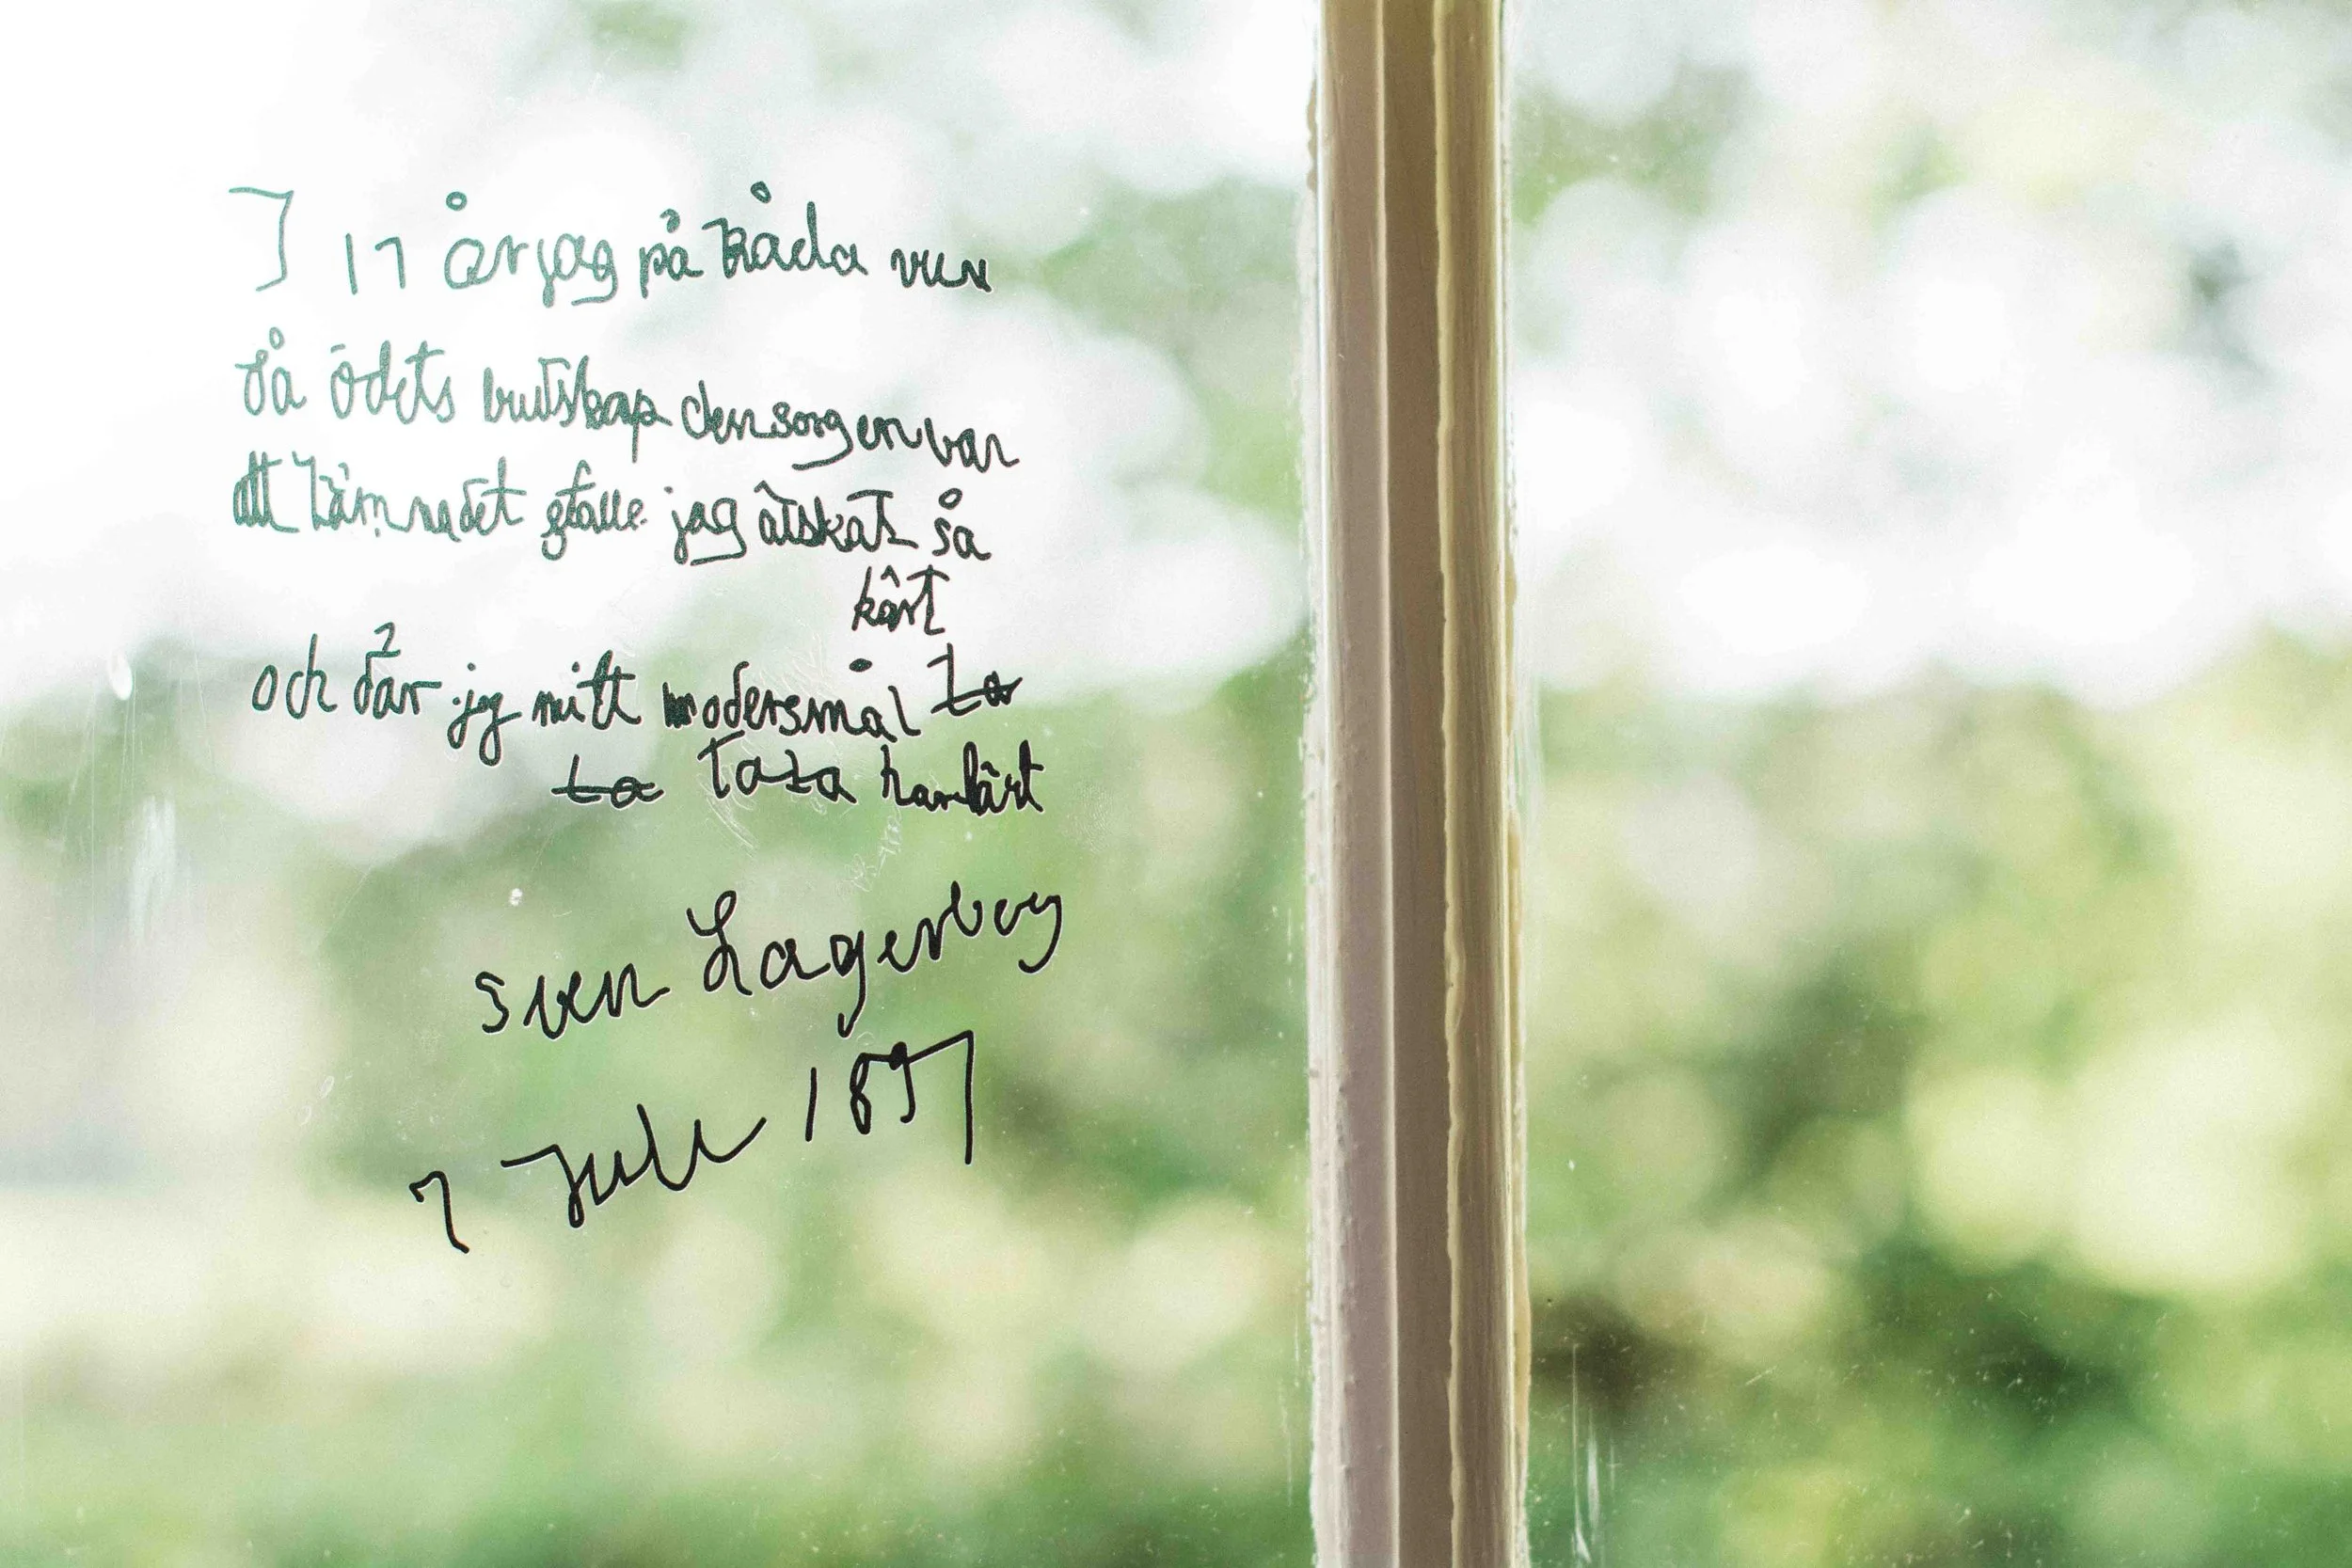 I 17 år jag på Råda var
då ödets budskap den sorgen var
att lämna det ställe jag älskat så
kärt
och där jag mitt modersmål ta
ta tala har lärt
Sven Lagerberg
7 Juli 1897